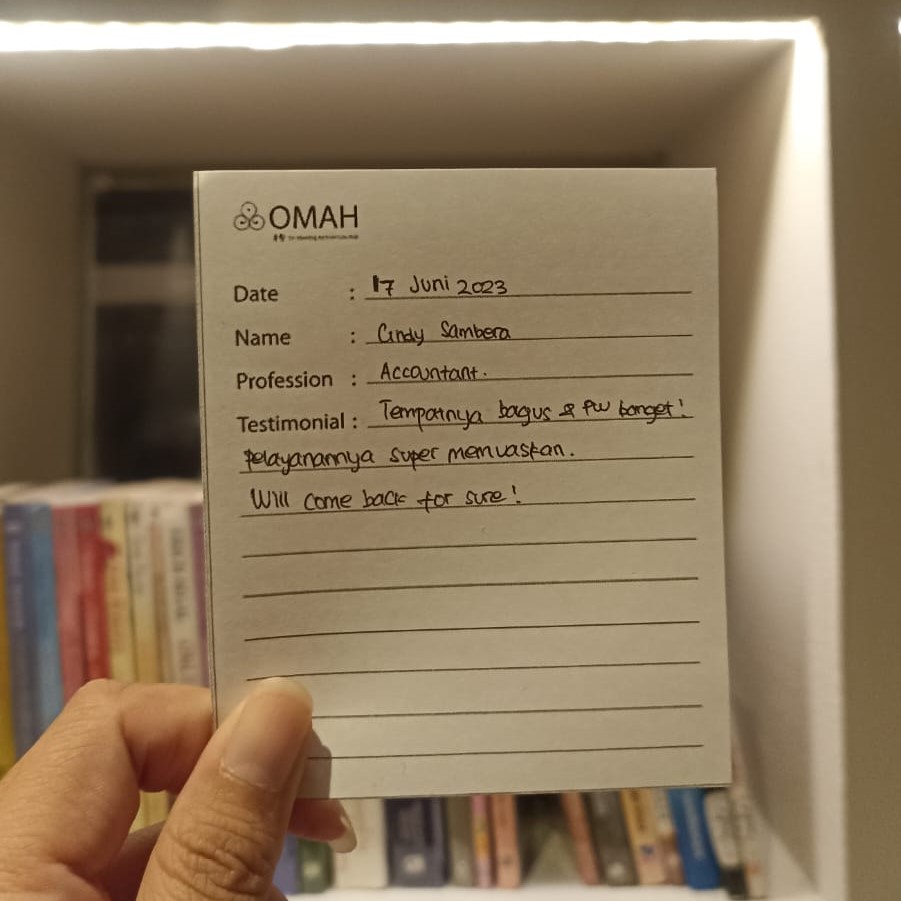 OMAH
Date : 17 Juni 2023
Name : Cindy Sambera
Profession : Accountant.
Testimonial : Tempatnya bagus & PW banget!
pelayanannya super memuaskan.
Will come back for sure!